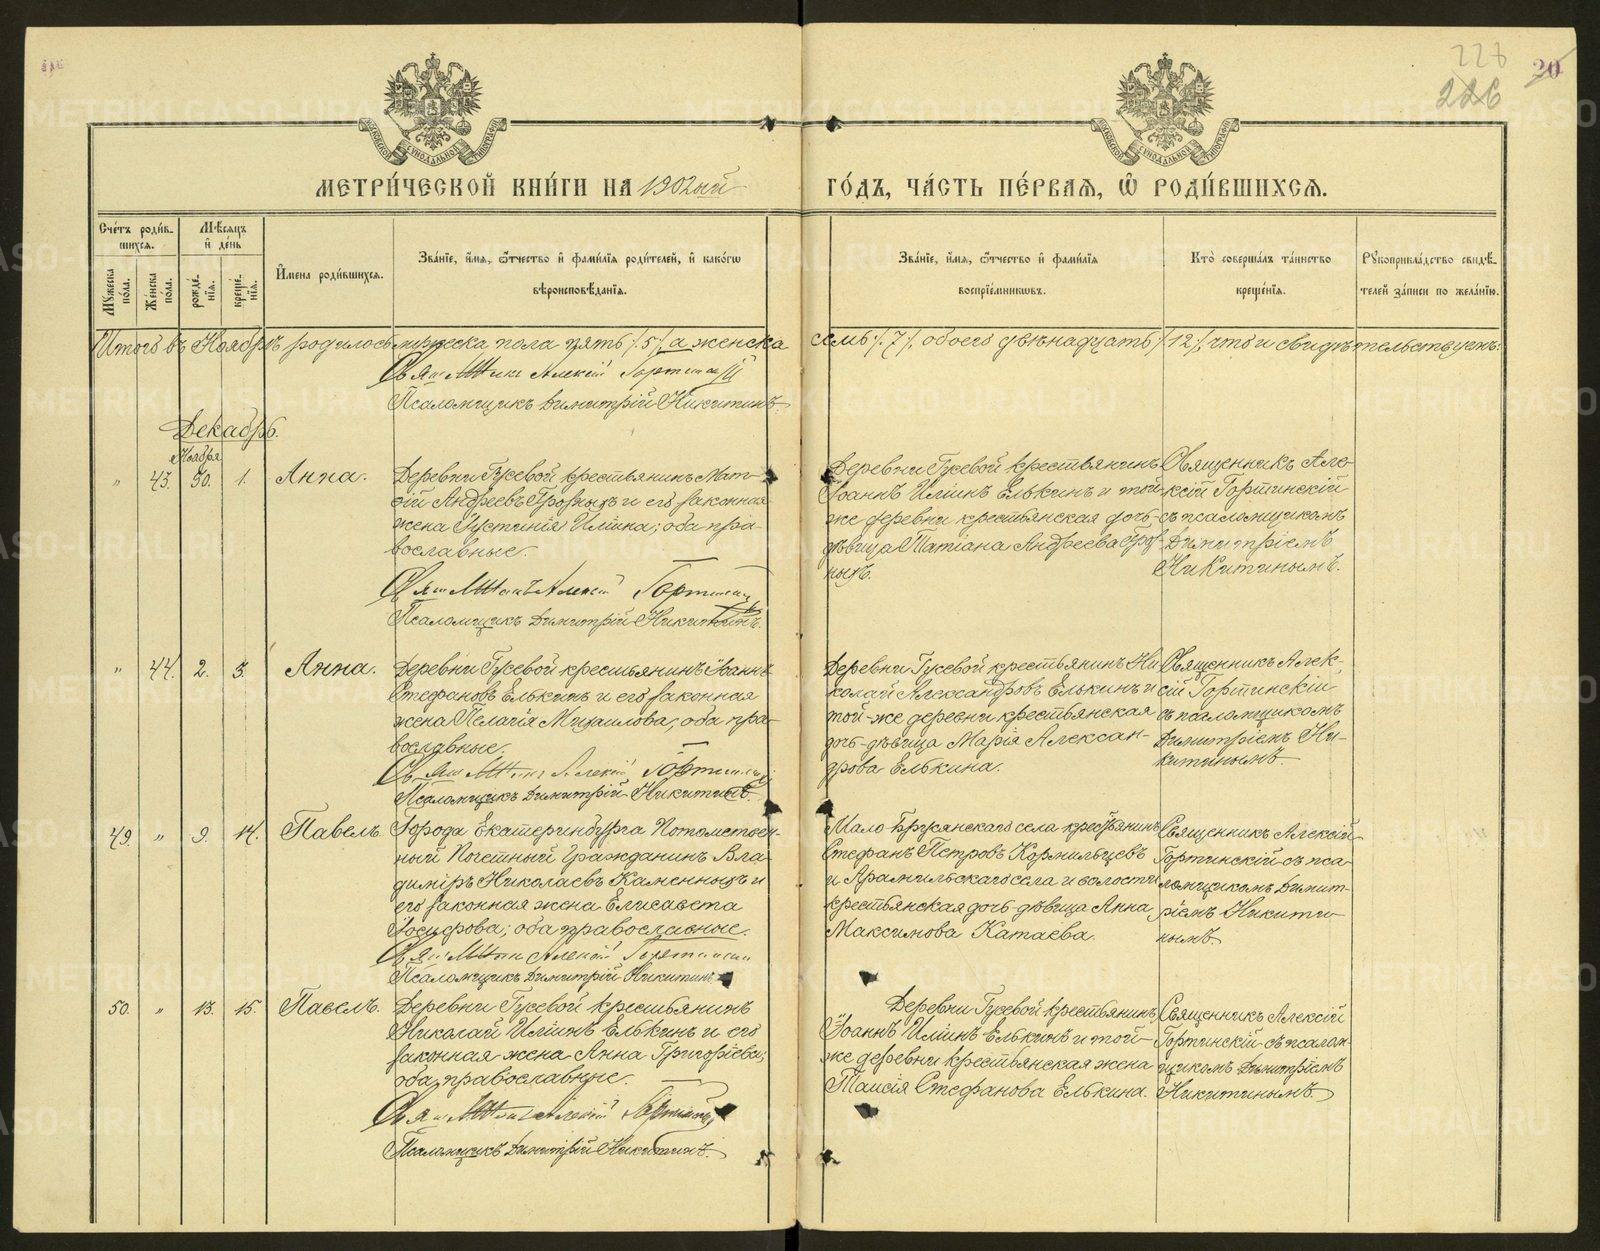 20
226
МОСКОВСКОЙ СѴНОДАЛЬНОЙ ТИПОГРАФІИ
МОСКОВСКОЙ СѴНОДАЛЬНОЙ ТИПОГРАФІИ
МЕТРИ́ЧЕСКОЙ КНИ́ГИ НА 1902ый ГО́ДЪ, ЧА́СТЬ ПЕ́РВАѦ, Ѿ РОДИ́ВШИХСѦ.
Сче́тъ роди́в-
шихсѧ.
Мꙋжеска по́ла.
Же́нска по́ла.
Мѣ́сѧцъ и҆ де́нь
рожде́нїѧ.
креще́нїѧ.
И҆мена роди́вшихсѧ.
Зва́нїе, и҆́мѧ, ѻ҆́тчество и҆ фами́лїѧ роди́телей, и҆ како́гѡ
вѣроисповѣ́данїѧ.
Зва́нїе, и҆́мѧ, ѻ҆́тчество и҆ фами́лїѧ
воспрїе́мникѡвъ.
Кто̀ соверша́лъ та́инство
креще́нїѧ.
Рꙋкоприкла́дство свидѣ́-
телей за́писи по жела́нїю.
Итого въ Ноябрѣ родилось мужеска пола пять /5/, а женска семь /7/, обоего двѣнадцать /12/, что и свидѣтельствуемъ:
Алексій
Псаломщикъ Димитрій Никитинъ.
Декабрь.
Ноября
" 43. 30. 1. Анна.
Деревни Гусевой крестьянинъ Мат-
ѳій Андреевъ Грозныхъ и его законная
жена Іустинія Иліина; оба пра-
вославные.
Алексій
Псаломщикъ Димитрій Никитинъ.
Деревни Гусевой крестьянинъ
Іоаннъ Иліинъ Елькинъ и той-
же деревни крестьянская дочь-
дѣвица Татіана Андреева Гроз-
ныхъ.
Священникъ Але-
ксій Гортинскій
съ псаломщикомъ
Димитріемъ
Никитинымъ.
" 44. 2. 3. Анна.
Деревни Гусевой крестьянинъ Іоаннъ
Стефановъ Елькинъ и его законная
жена Пелагія Михаилова; оба пра-
вославные.
Алексій
Псаломщикъ Димитрій Никитинъ.
Деревни Гусевой крестьянинъ Ни-
колай Александровъ Елькинъ и
той-же деревни крестьянская
дочь-дѣвица Марія Алексан-
дрова Елькина.
Священникъ Алек-
сій Гортинскій
съ псаломщикомъ
Димитріемъ Ни-
китинымъ.
49. " 9. 14. Павелъ.
Города Екатеринбурга Потомствен-
ный Почетный Гражданинъ Вла-
диміръ Николаевъ Каменныхъ и
его законная жена Елисавета
Іосифова; оба православные.
Алексій
Псаломщикъ Димитрій Никитинъ
Мало-Брусянскаго села крестьянинъ
Стефанъ Петровъ Кормильцевъ
и Арамильскаго села и волости
крестьянская дочь-дѣвица Анна
Максимова Катаева.
Священникъ Алексій
Гортинскій съ пса-
ломщикомъ Димит-
ріемъ Никити-
нымъ.
50. " 13. 15. Павелъ.
Деревни Гусевой крестьянинъ
Николай Иліинъ Елькинъ и его
законная жена Анна Григоріева;
оба православные.
Алексій
Псаломщикъ Димитрій Никитинъ.
Деревни Гусевой крестьянинъ
Іоаннъ Иліинъ Елькинъ и той-
же деревни крестьянская жена
Таисія Стефанова Елькина.
Священникъ Алексій
Гортинскій съ псалом-
щикомъ Димитріемъ
Никитинымъ.
METRIKI.GASO-URAL.RU